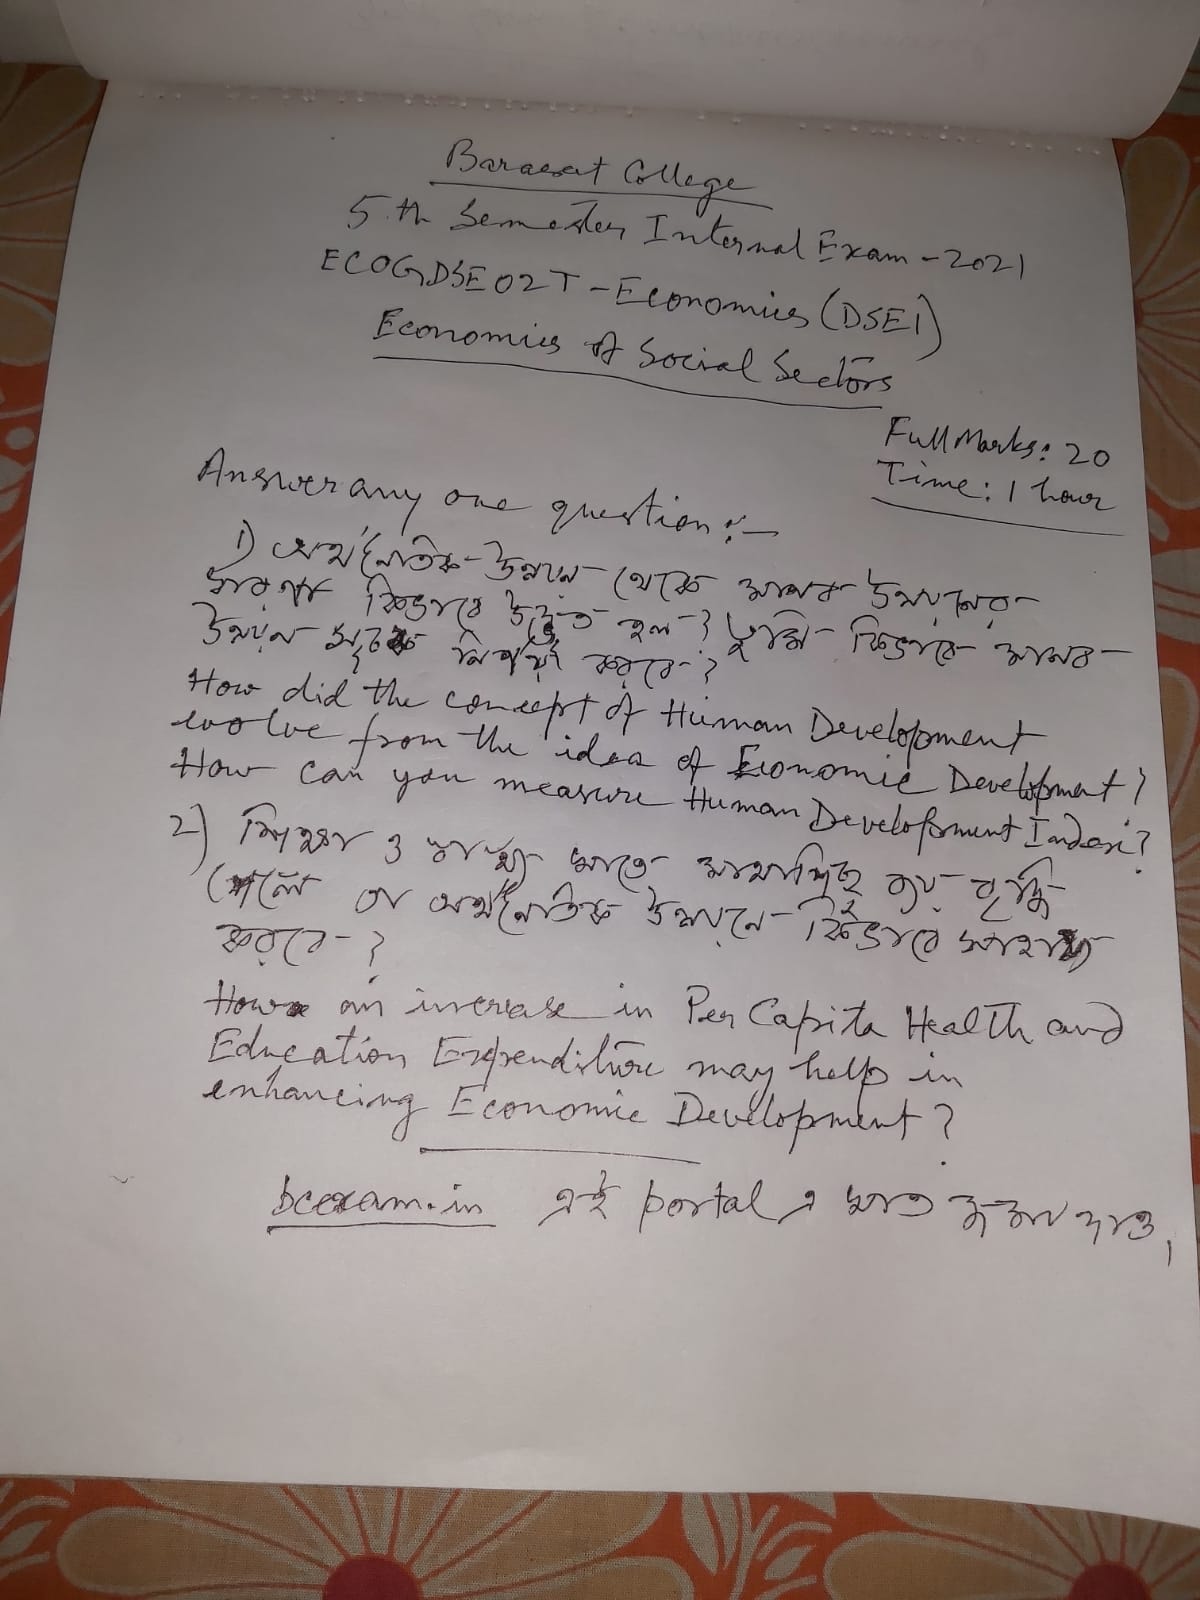 Barasat College
5th Semester Internal Exam - 2021
ECOGDSE02T - Economics (DSE1)
Economics of Social Sectors
Full Marks: 20
Time: 1 hour
Answer any one question :-
1) অর্থনৈতিক উন্নয়ন থেকে মানব উন্নয়নের
ধারণা কিভাবে উদ্ভূত হল? তুমি কিভাবে মানব
উন্নয়ন সূচক নির্ণয় করবে?
How did the concept of Human Development
evolve from the idea of Economic Development?
How can you measure Human Development Index?
2) শিক্ষা ও স্বাস্থ্য খাতে মাথাপিছু ব্যয় বৃদ্ধি
পেলে তা অর্থনৈতিক উন্নয়নে কিভাবে সাহায্য
করবে?
How an increase in Per Capita Health and
Education Expenditure may help in
enhancing Economic Development?
bcexam.in এই portal এ খাতা জমা দাও,